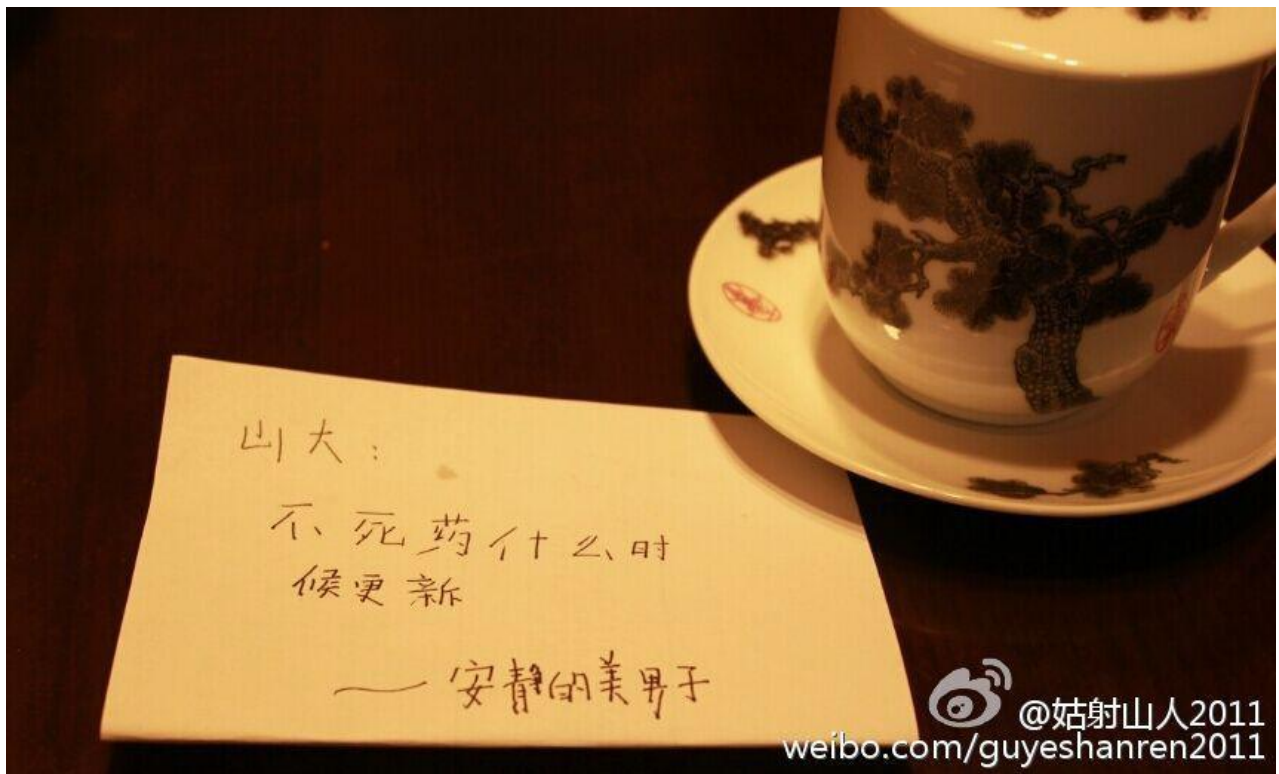 山大:
不死药什么时
候更新
——安静的美男子
@姑射山人2011
weibo.com/guyeshanren2011